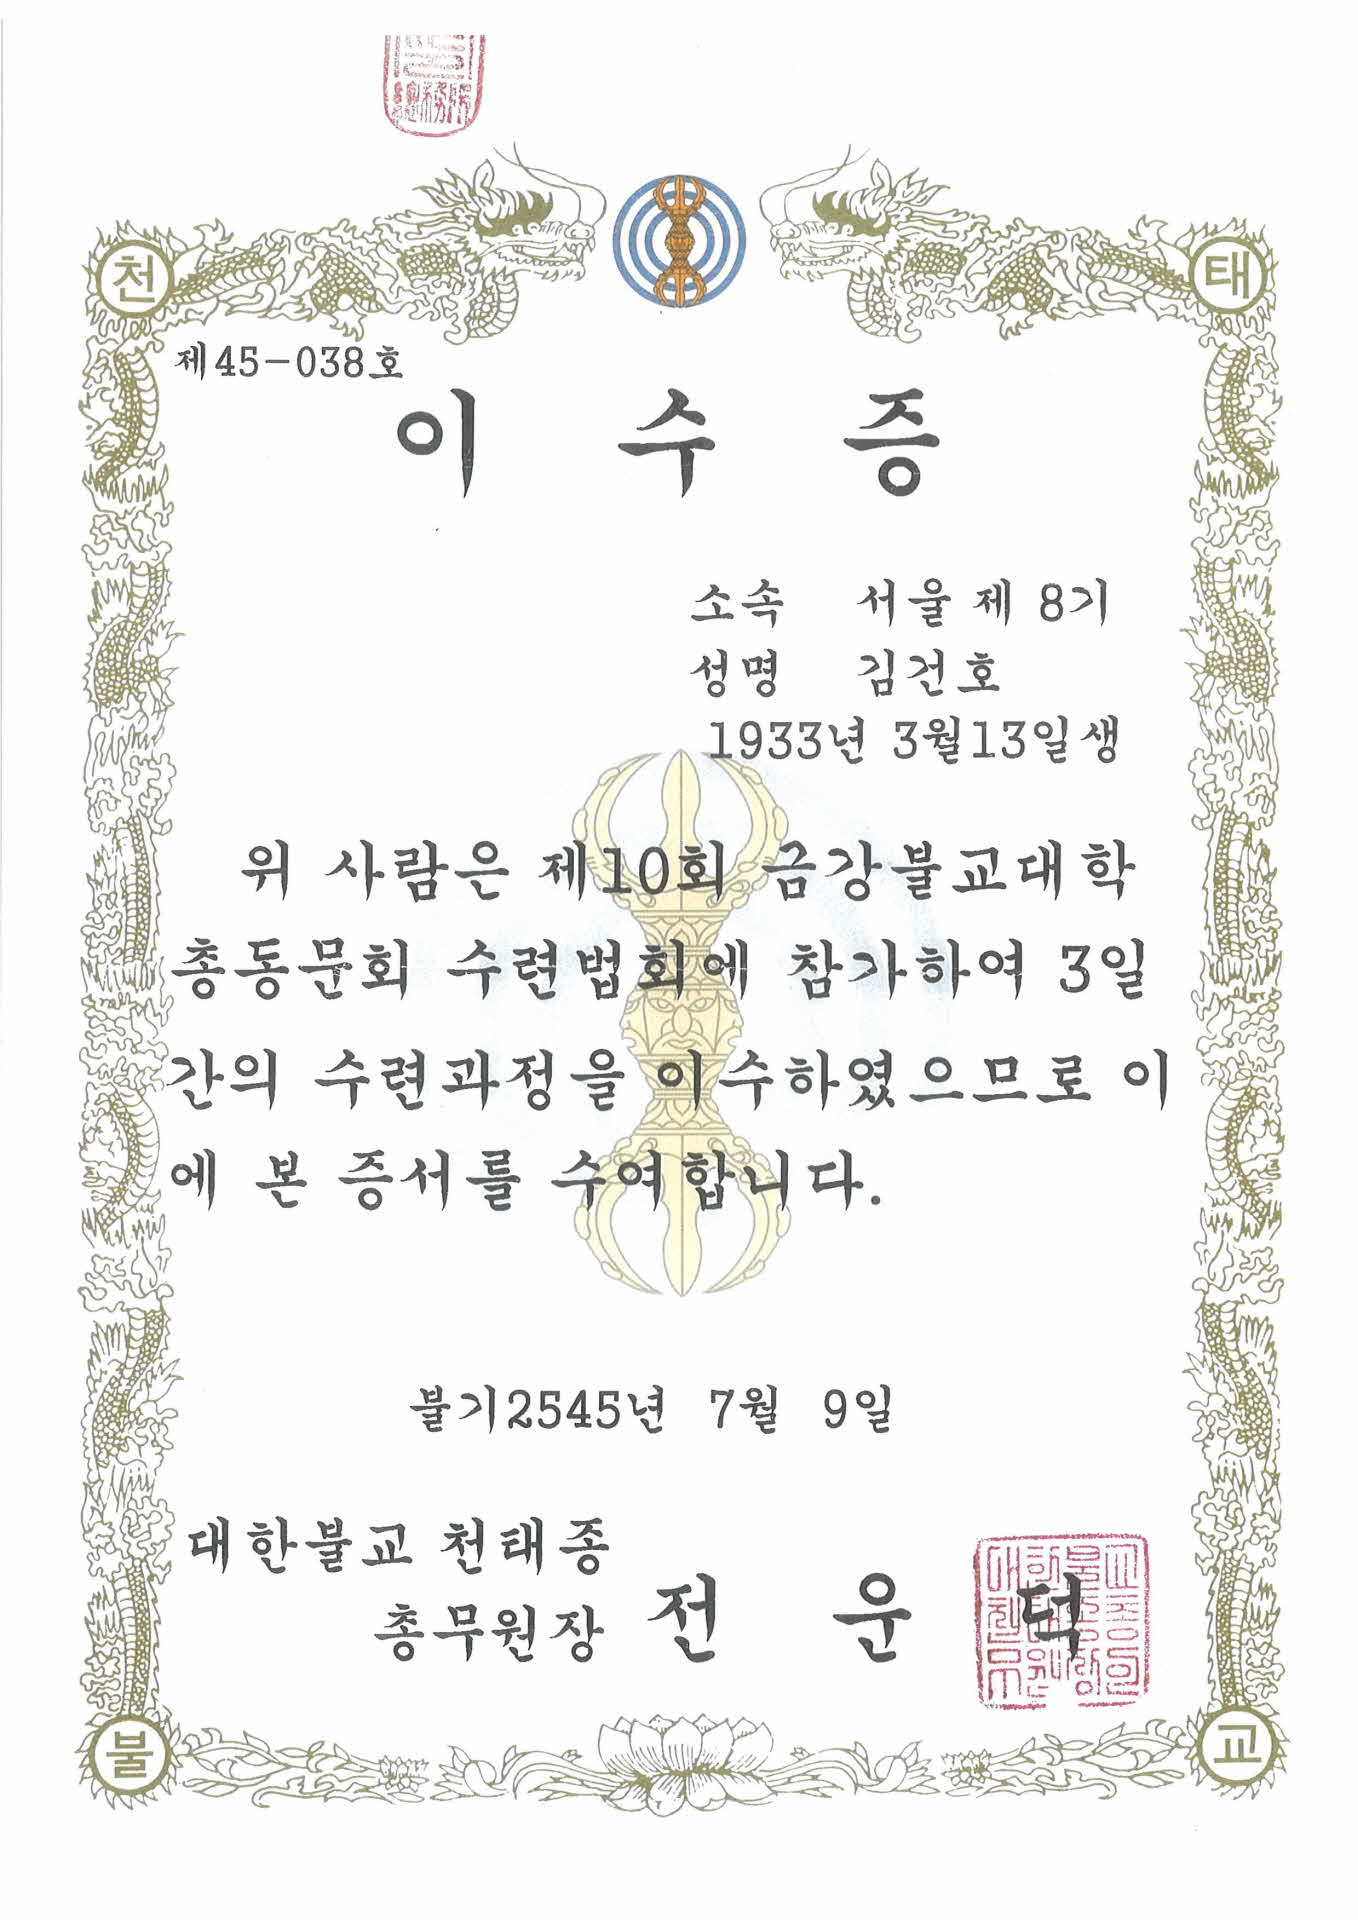 천 태
제45-038호
이 수 증
소속 서울 제 8기
성명 김건호
1933년 3월13일생
위 사람은 제10회 금강불교대학
총동문회 수련법회에 참가하여 3일
간의 수련과정을 이수하였으므로 이
에 본 증서를 수여합니다.
불기2545년 7월 9일
대한불교 천태종
총무원장 전 운 덕
불 교